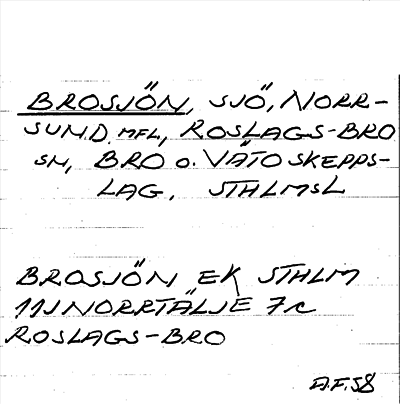 BROSJÖN, SJÖ, NORR-
SUND. MFL, ROSLAGS-BRO
SN, BRO O. VÄTÖ SKEPPS-
LAG, STHLMSL
BROSJÖN EK STHLM
11J NORRTÄLJE 7c
ROSLAGS-BRO
A.F. 58